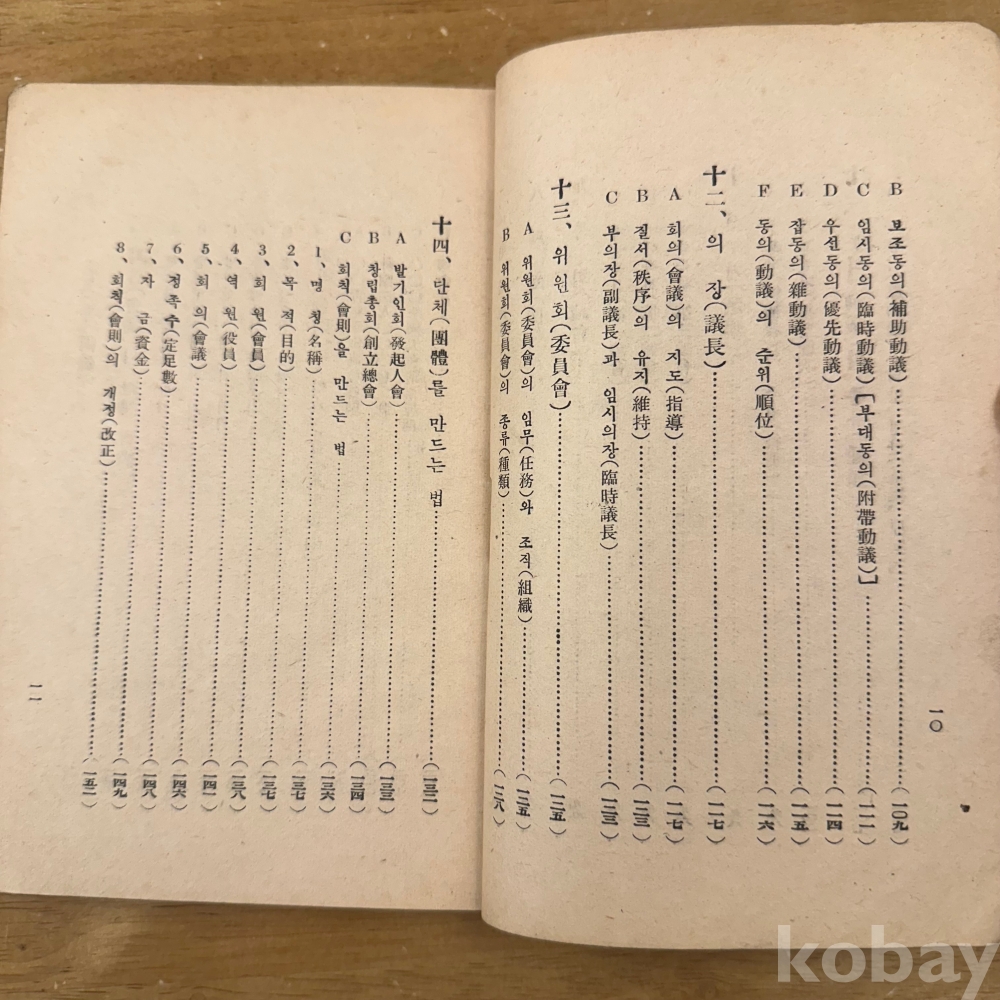 B 보조동의(補助動議)……(一〇九)
C 임시동의(臨時動議)[부대동의(附帶動議)]……(一一一)
D 우선동의(優先動議)……(一一四)
E 잡동의(雜動議)……(一一五)
F 동의(動議)의 준위(順位)……(一一六)
十二、의 장(議長)……(一一七)
A 회의(會議)의 지도(指導)……(一一七)
B 질서(秩序)의 유지(維持)……(一二三)
C 부의장(副議長)과 임시의장(臨時議長)……(一二三)
十三、위원회(委員會)……(一二五)
A 위원회(委員會)의 임무(任務)와 조직(組織)……(一二五)
B 위원회(委員會)의 종류(種類)……(一二八)
一〇
十四、단체(團體)를 만드는 법……(一三二)
A 발기인회(發起人會)……(一三三)
B 창립총회(創立總會)……(一三四)
C 회칙(會則)을 만드는 법……(一三六)
1、명 칭(名稱)……(一三七)
2、목 적(目的)……(一三七)
3、회 원(會員)……(一三八)
4、역 원(役員)……(一四一)
5、회 의(會議)……(一四六)
6、정족수(定足數)……(一四八)
7、자 금(資金)……(一四九)
8、회칙(會則)의 개정(改正)……(一五二)
一一
kobay